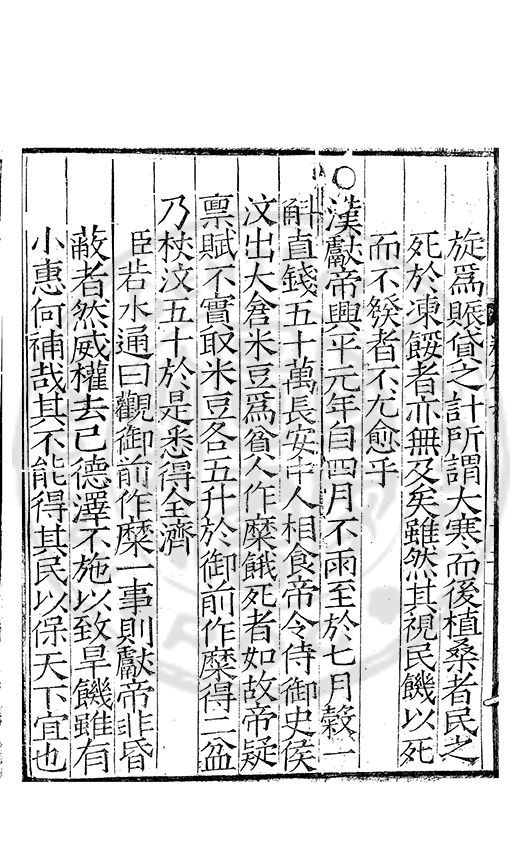 旋爲賑貸之計所謂大寒而後植桑者民之
死於凍餒者亦無及矣雖然其視民饑以死
而不發者不尤愈乎
○漢獻帝興平元年自四月不雨至於七月穀一
斛直錢五十萬長安中人相食帝令侍御史侯
汶出大倉米豆爲貧人作糜餓死者如故帝疑
禀賦不實取米豆各五升於御前作糜得二盆
乃杖汶五十於是悉得全濟
臣若水通曰觀御前作糜一事則獻帝非昏
蔽者然威權去己德澤不施以致旱饑雖有
小惠何補哉其不能得其民以保天下宜也